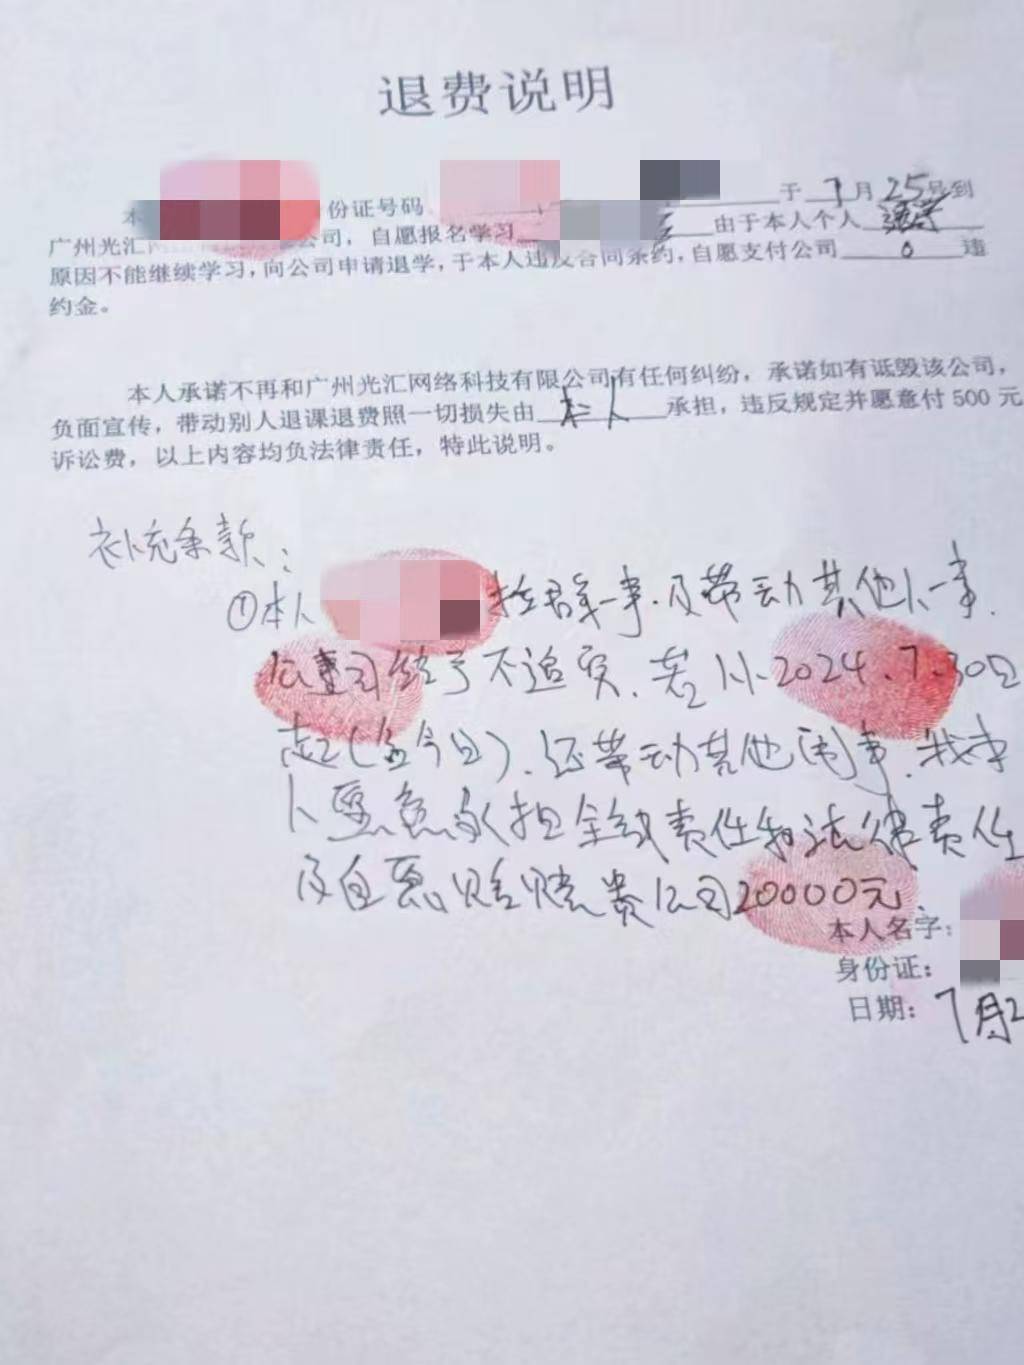 退费说明
本 份证号码 于 7 月 25 号到
广州光汇 公司，自愿报名学习 由于本人个人 退学
原因不能继续学习，向公司申请退学，于本人违反合同条约，自愿支付公司 0 违
约金。
本人承诺不再和广州光汇网络科技有限公司有任何纠纷，承诺如有诋毁该公司，
负面宣传，带动别人退课退费照一切损失由 本人 承担，违反规定并愿意付 500 元
诉讼费，以上内容均负法律责任，特此说明。
补充条款：
①本人 拉群一事.及带动其他人一事.
公司给予不追究.若从2024.7.30日
起(含今日).还带动其他闹事.我本
人愿意承担全部责任和法律责任
及自愿赔偿贵公司20000元.
本人名字：
身份证：
日期：7月2